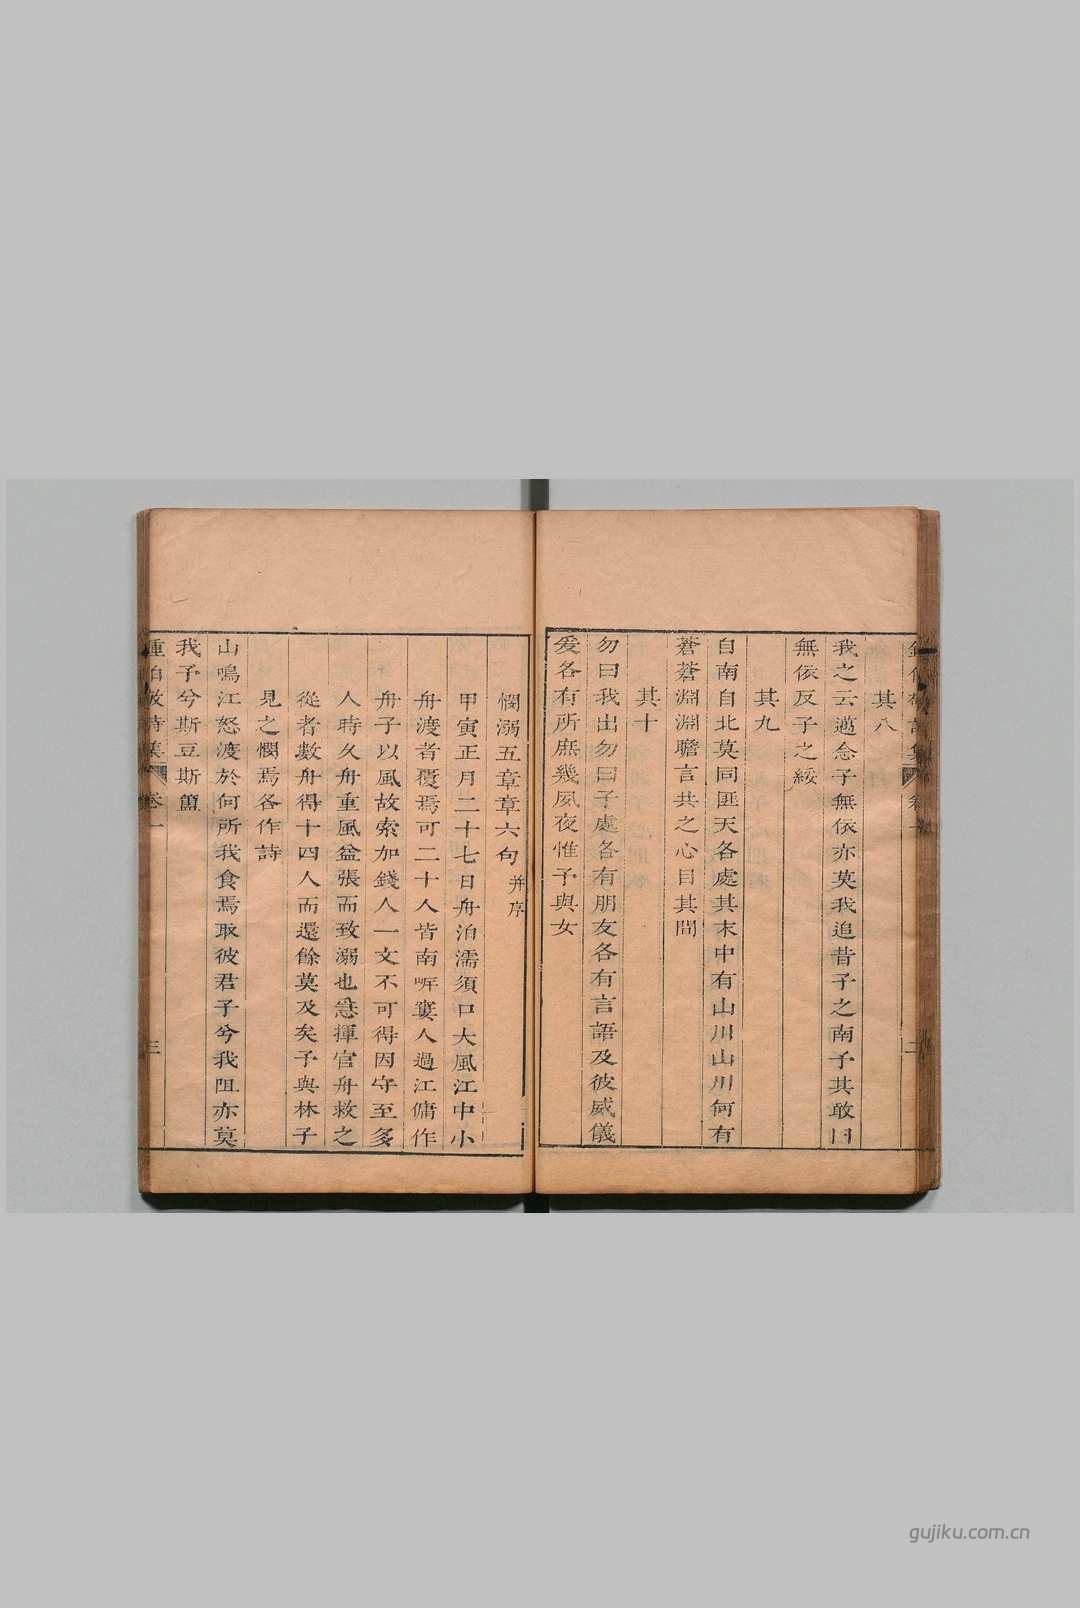 其八
我之云邁念子無依亦莫我追昔子之南予其敢曰
無依反子之綏
其九
自南自北莫同匪天各處其末中有山川山川何有
蒼蒼淵淵瞻言共之心目其間
其十
勿曰我出勿曰子處各有朋友各有言語及彼威儀
爰各有所庶幾夙夜惟予與女
憫溺五章章六句 并序
甲寅正月二十七日舟泊濡須口大風江中小
舟渡者覆焉可二十人皆南㟁窶人過江傭作
舟子以風故索加錢人一文不可得因守至多
人時久舟重風益張而致溺也急揮官舟救之
從者數舟得十四人而還餘莫及矣予與林子
見之憫焉各作詩
山鳴江怒渡於何所我食焉取彼君子兮我阻亦莫
我予兮斯豆斯簠
鍾伯敬詩集 卷一 三
gujiku.com.cn